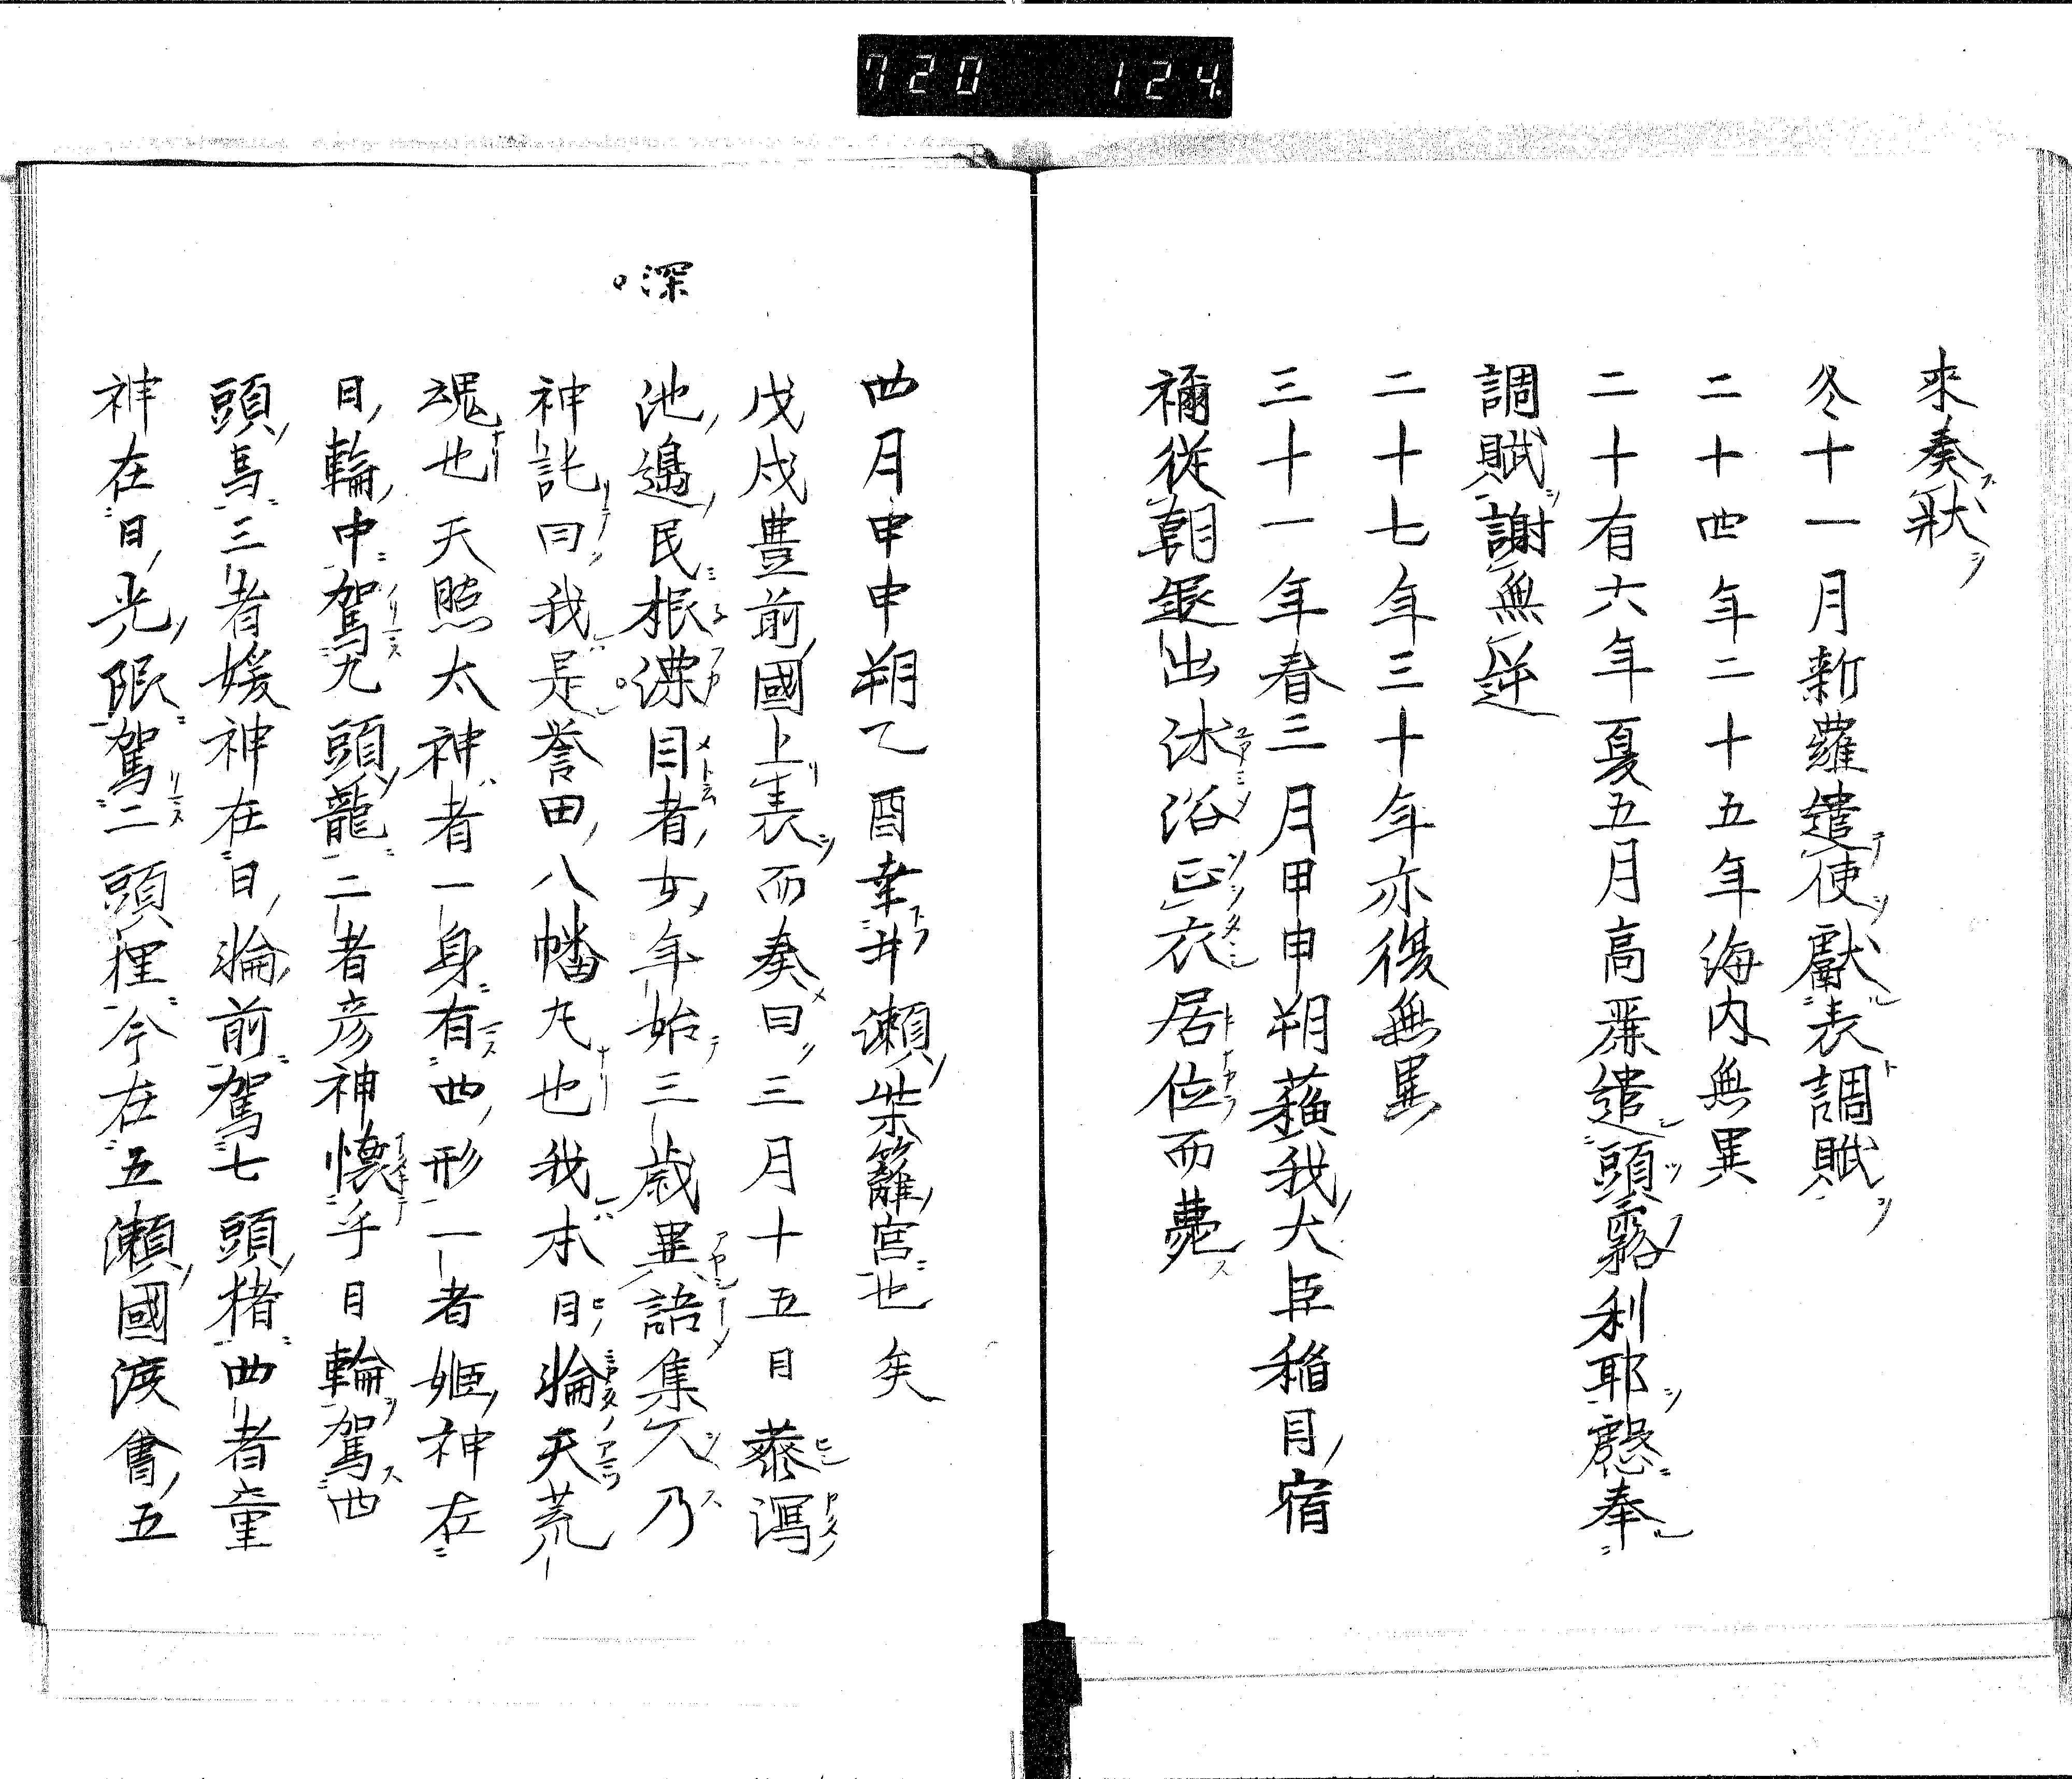 720 124.
來奏狀
冬十一月新蘿遣使獻表調賦
二十四年二十五年海内無異
二十有六年夏五月高麗遣頭霧利耶慇奉
調賦謝無逆
二十七年三十年亦復無異
三十一年春三月甲申朔蘓我大臣稲目宿
禰從朝退出沐浴正衣居位而薨
四月申申朔乙酉幸井瀬柴籬宮也矣
戊戌豊前國上表而奏曰三月十五日菱潟
池邉民根漂目者女年始三歳異語集人乃
神託曰我是誉田八幡丸也我本日輪天荒
魂也天照太神者一身有四形一者姬神在
日輪中駕九頭龍二者彦神懐乎日輪駕四
頭馬三者媛神在日輪前駕七頭猪四者童
神在日光限駕二頭狸今在五瀬國渡會五
。深